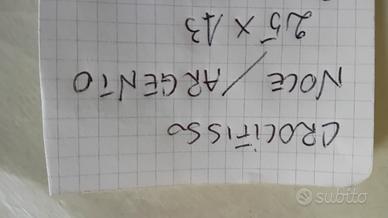 CROCIFISSO
NOCE / ARGENTO
25 X 13
subito